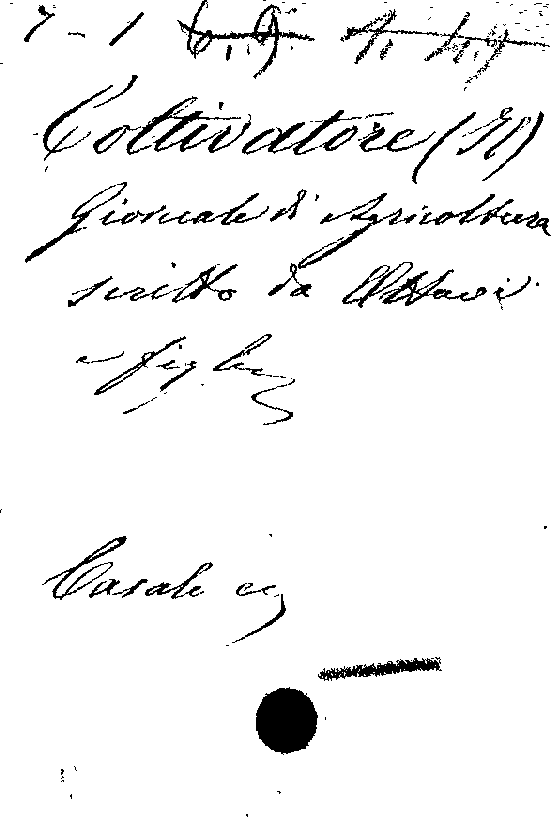 7 - 1 6. 9. 1. 4. 9
Coltivatore (Il)
Giornale di Agricoltura
scritto da Ottavi
e figli
Casale